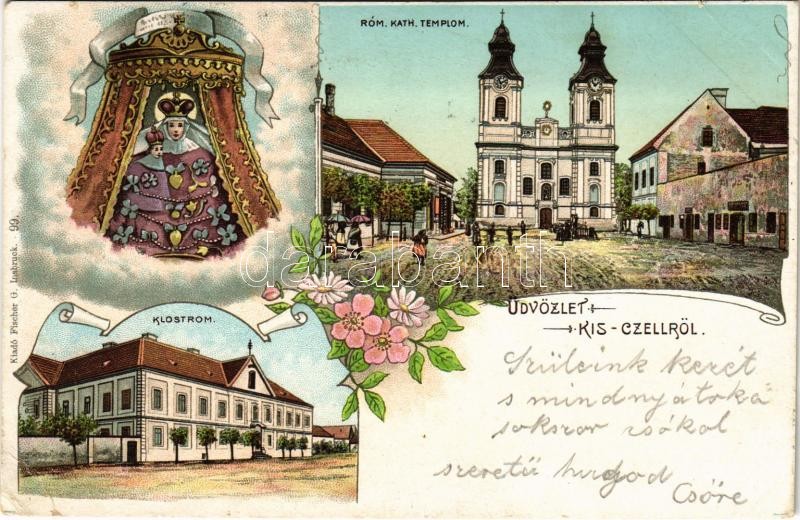 RÓM. KATH. TEMPLOM.
Kiadó Fischer G. Insbruck. 99.
KLOSTROM.
ÜDVÖZLET
KIS-CZELLRŐL.
darabanth
Szüleink kezét
s mindnyátoka
sokszor csókol
szerető hugod
Csöre